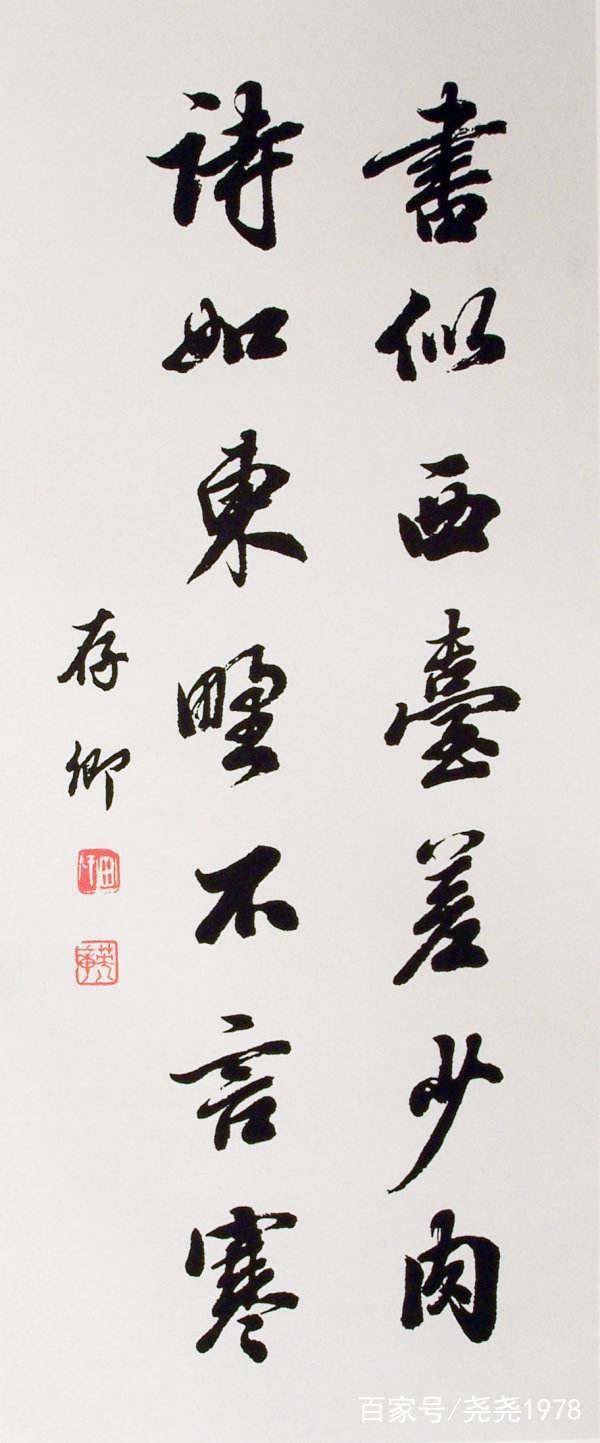 書似西臺差少肉
詩如東野不言寒
存卿
百家号/尧尧1978